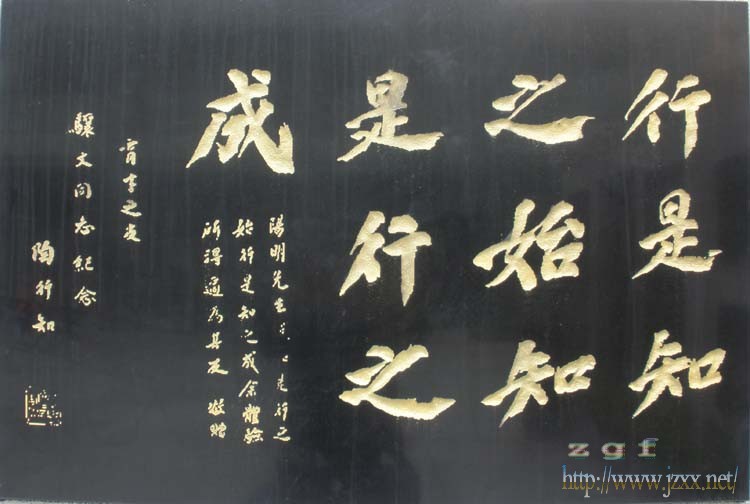 行是知
之始知
是行之
成
陽明先生是行之
始行是知之成余體驗
所得適為其反 敬贈
育才之友
驥文同志紀念
陶行知
zgf
http://www.jzxx.net/